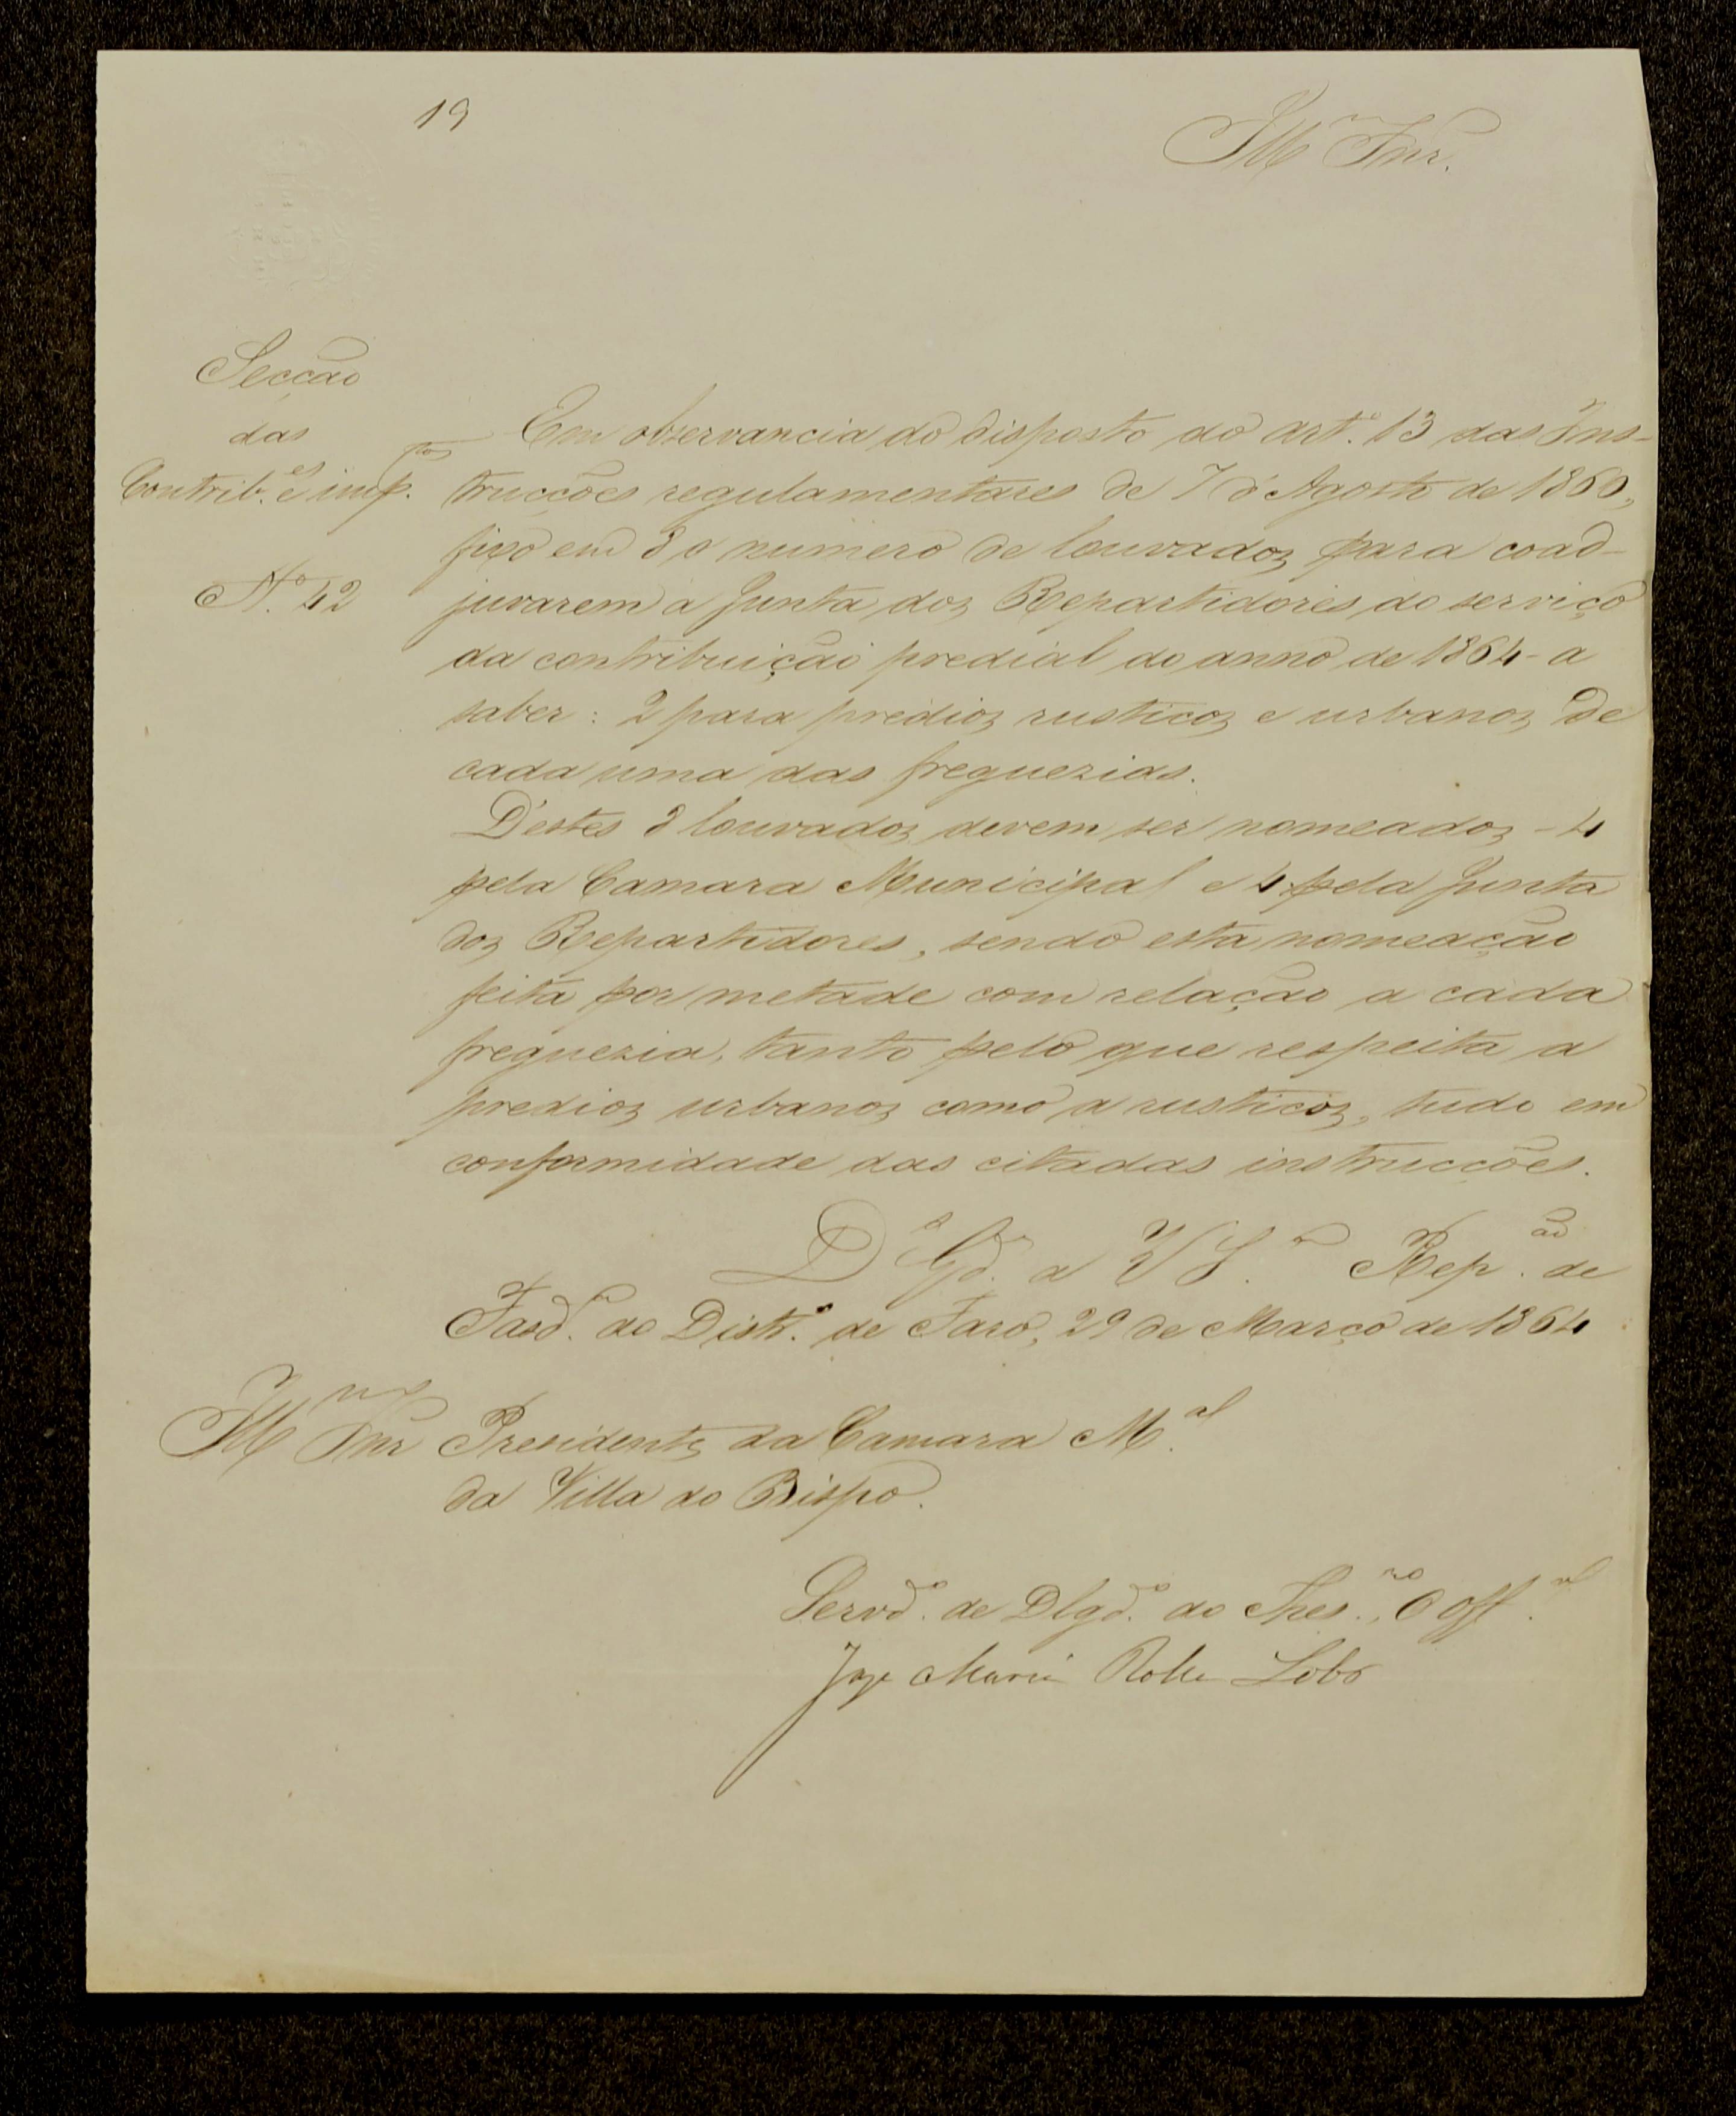 19
Ill.mo Snr.
Secção
das
Contrib.es e imp.tos
N.o 42
Em observancia do disposto no art.o 13 das Ins-
trucções regulamentares de 7 d'Agosto de 1860,
fixo em 8 o numero de louvados para coad-
juvarem a Junta dos Repartidores no serviço
da contribuição predial do anno de 1864 - a
saber: 2 para predios rusticos e urbanos de
cada uma das freguezias.
D'estes 8 louvados devem ser nomeados - 4
pela Camara Municipal e 4 pela Junta
dos Repartidores, sendo esta nomeação
feita por metade com relação a cada
freguezia, tanto pelo que respeita a
predios urbanos como a rusticos, tudo em
conformidade das citadas instrucções.
D.s G.de a V S.a Rep.ão de
Fasd.a do Distr.o de Faro, 29 de Março de 1864
Ill.mo Snr Presidente da Camara M.al
da Villa do Bispo.
Servd.o de Dlgd.o do Thes.ro, O Off.al
Jose Maria Lobo